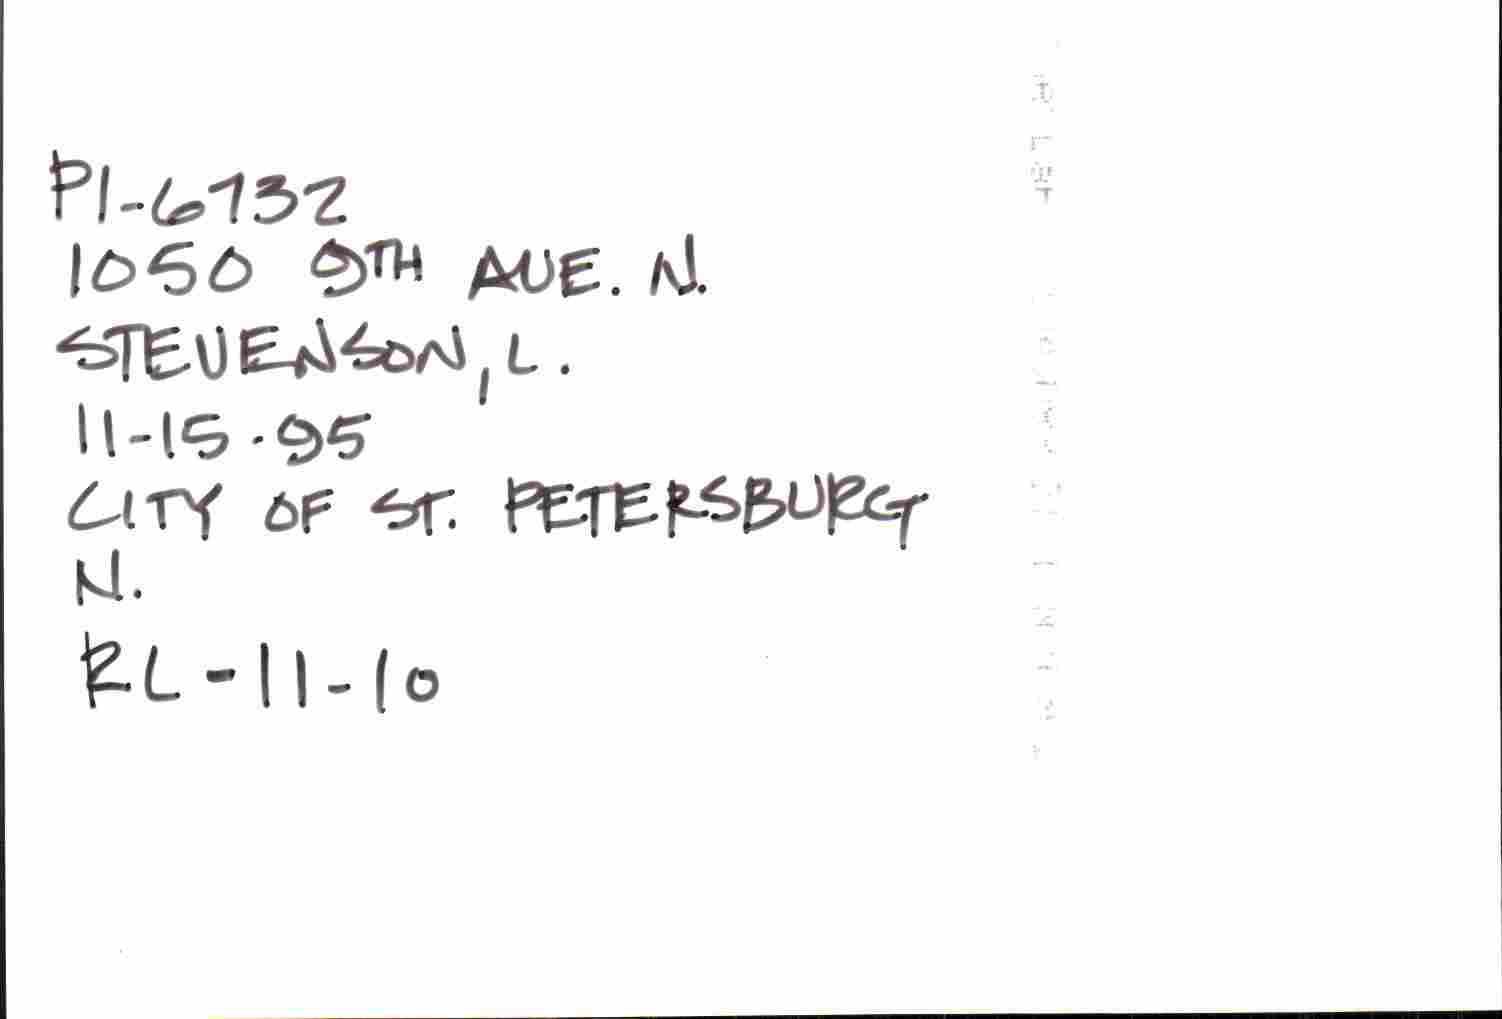 PI-6732
1050 9TH AVE. N.
STEVENSON, L.
11-15-95
CITY OF ST. PETERSBURG
N.
RL-11-10